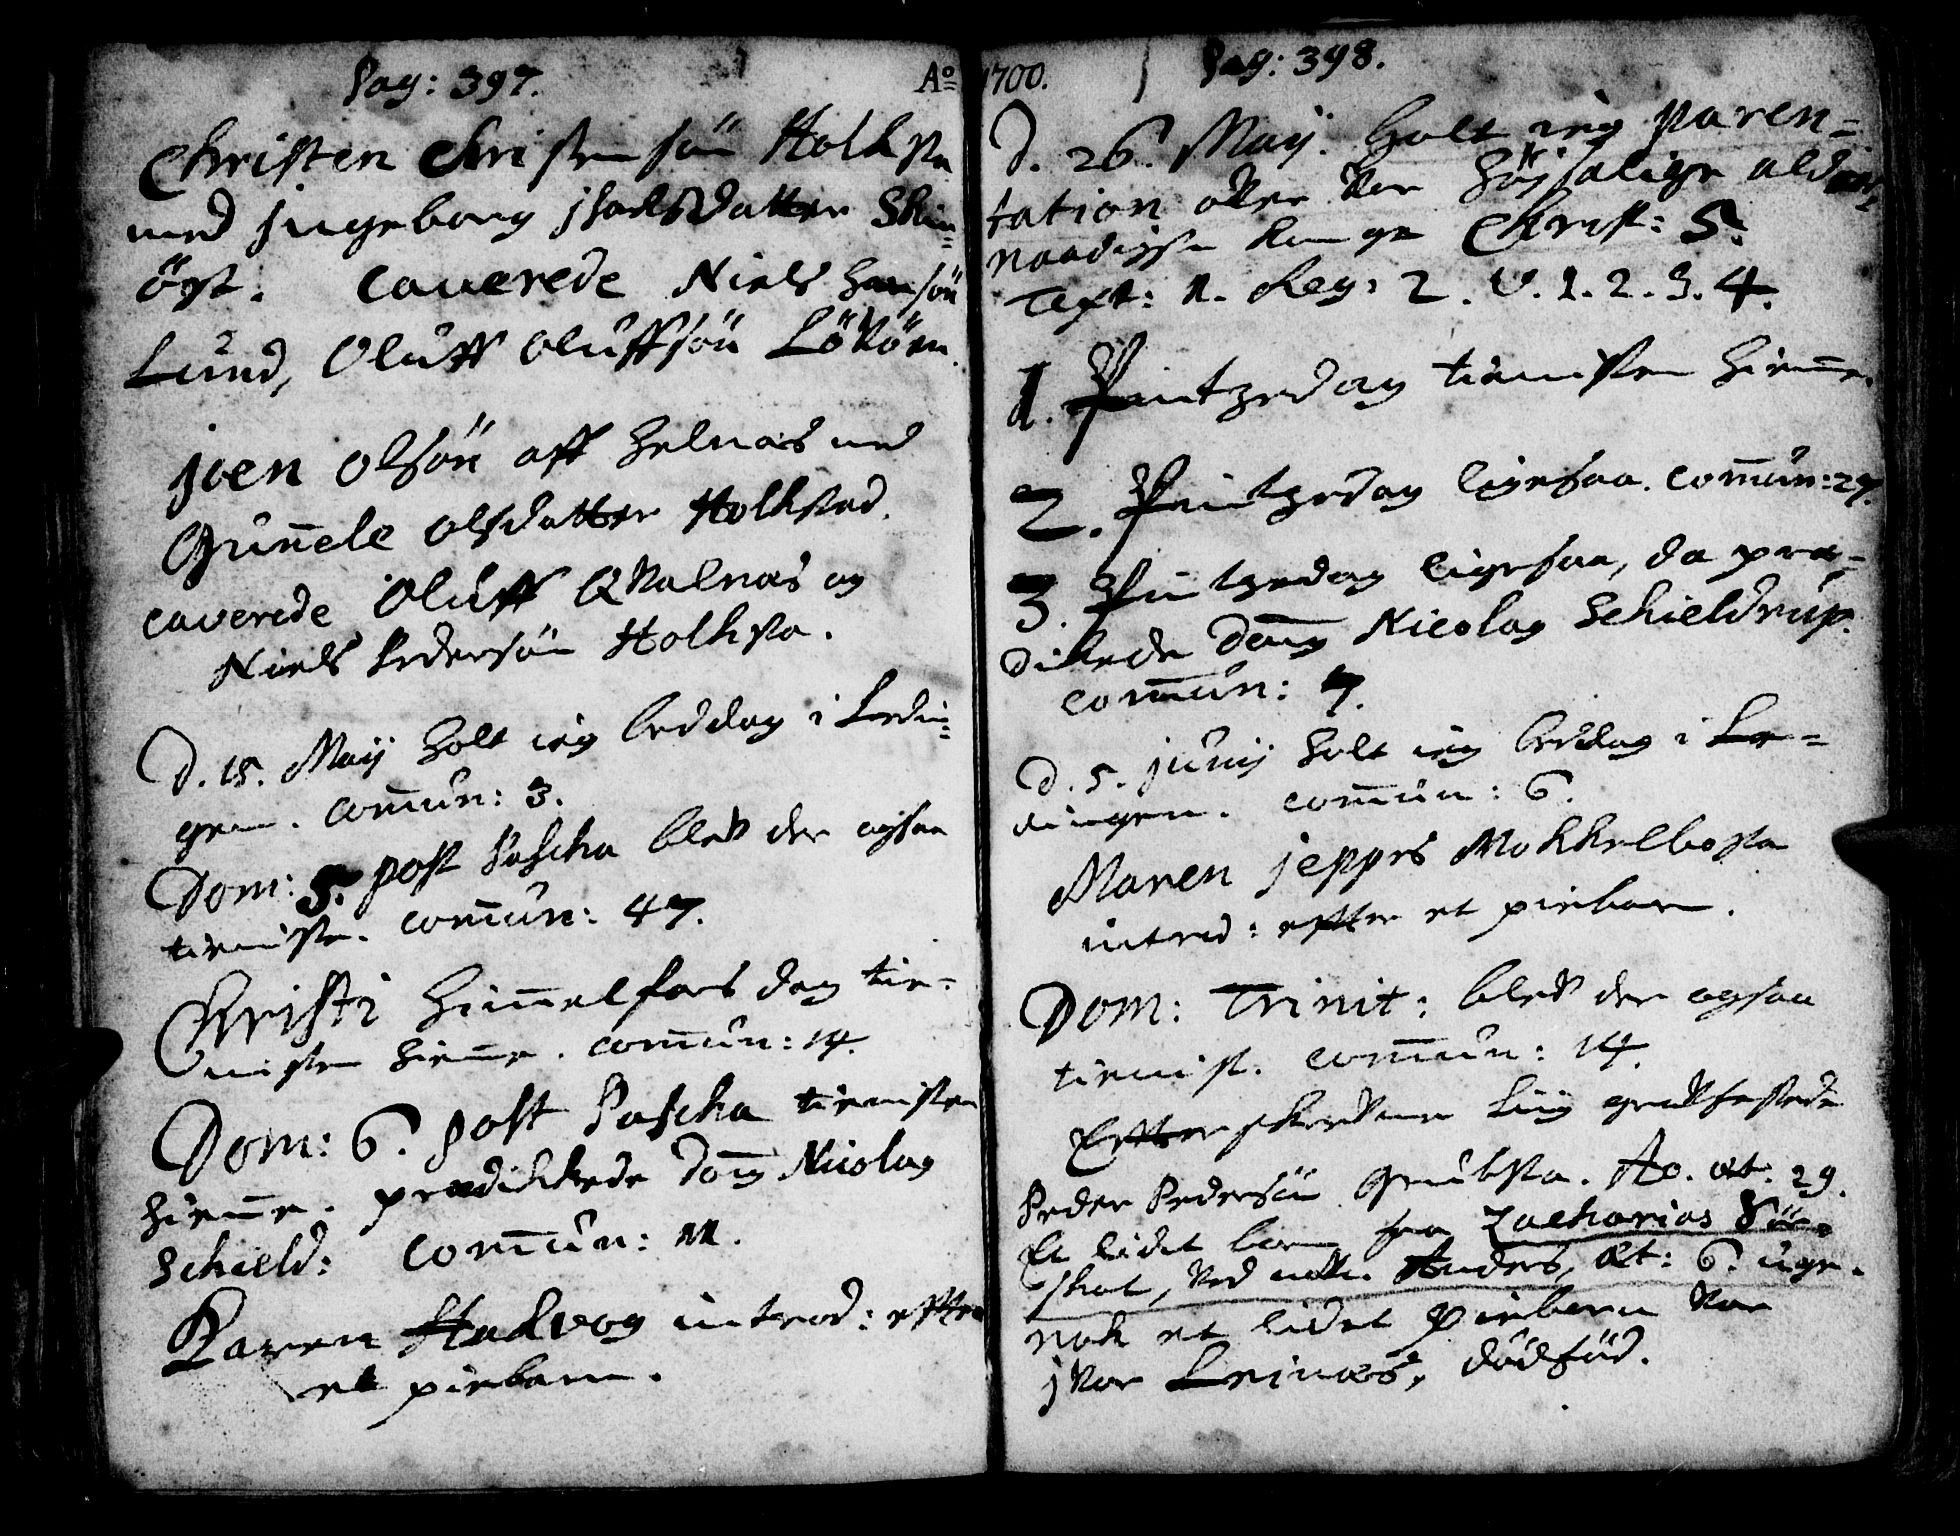 Pag: 397. Ao
Christen Christensön Holksta
med Ingeborg Isachsdatter Skin-
öst. Caverede Niels Hansön
Lund, Oluff Oluffsön Lökören.
Joen Olsön aff Helnæs med
Guñele Olsdatter Holksted.
caverede Oluff Qvalnæs og
Niels Pedersön Holksta.
D. 15. Maij holt ieg beddag i Lødin-
gen. Com̅un: 3.
Dom: 5. post Pascha blef der ogsaa
tienist. com̅un: 47.
Christi Him̅elfars dag tie-
nisten hiem̅e. com̅un: 14.
Dom: 6. post Pascha tienisten
hiem̅e. prædickede Dom̅ Nicolay
Schield: Com̅un: 11.
Karen introd: effter
et piebarn.
1700. Pag: 398.
D. 26. Maij. holt ieg Paren-
tation ofver vor Høysalige aldver-
naadigste konge Christ: 5.
Text: 1. Reg: 2. v. 1. 2. 3. 4.
1. Pintzedag tienisten hiem̅e.
2. Pintzedag ligesaa. com̅un: 27.
3. Pintzedag ligesaa, da præ-
dikede Dom̅ Nicolay Schieldrup.
com̅un: 7.
D. 5. Junij holt ieg beddag i Lø-
dingen. com̅un: 6.
Maren Jeppes Mokkelbosta
introd: effter et piebarn.
Dom: Trinit: blef der ogsaa
tienist. com̅un: 14.
Effterskrefne Liig græffestede
Peder Pedersön Grubsta. Ao. æt: 29.
Et lidet barn fra Zacharias
ved nafn Anders, æt: 6. uger.
nok et lidet Piebarn fra
Ivar Leinæs, dödföd.